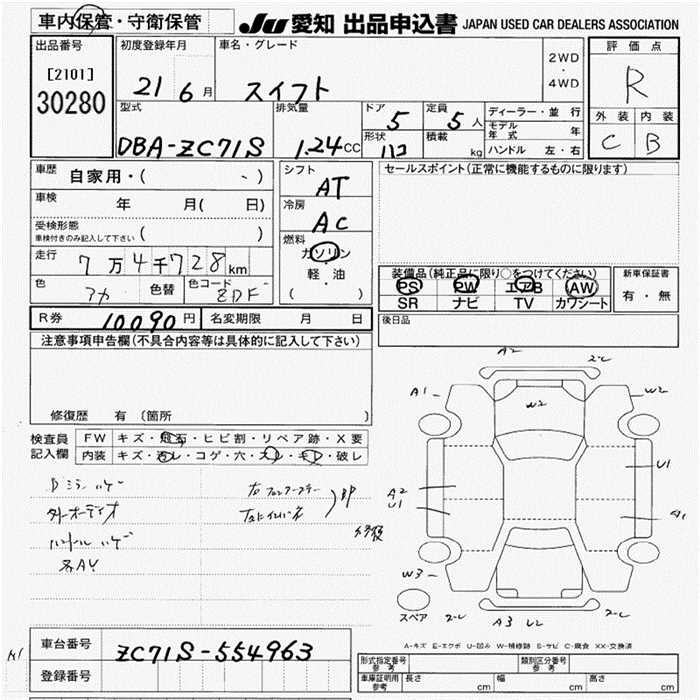 車内保管・守衛保管
JU 愛知 出品申込書 JAPAN USED CAR DEALERS ASSOCIATION
出品番号
[2101]
30280
初度登録年月
21 6 月
車名・グレード
スイフト
2WD
・
4WD
評価点
R
外装 内装
C B
型式
DBA-ZC71S
排気量
1.24 CC
ドア
5
形状
ハコ
定員
5 人
積載
kg
ディーラー・並 行
モデル年式 年
ハンドル 左・右
車歴
自家用・( 、)
車検
年 月( 日)
受検形態
車検付きのみ記入して下さい ( )
走行
7 万 4 千 728 km
色
アカ
色替
色コード
ZDF
シフト
AT
冷房
AC
燃料
ガソリン
・
軽・油
( )
セールスポイント(正常に機能するものに限ります)
装備品(純正品に限り○をつけてください)
PS PW エアB AW
SR ナビ TV カワシート
新車保証書
有・無
後日品
R券 10090 円 名変期限 月 日
注意事項申告欄(不具合内容等は具体的に記入して下さい)
修復歴 有 〔箇所 〕
検査員
記入欄
FW キズ・飛石・ヒビ割・リペア跡・X要
内装 キズ・汚レ・コゲ・穴・スレ・キレ・破レ
外オーディオ
ハンドル ハゲ
BP
修復
A2
2-C
A1
W2
W2
U1
A2
U1
A1
W3
スペア
2-C
A3
2-C
A-キズ E-エクボ U-凹み W-補修跡 S-サビ C-腐食 XX-交換済
車台番号
ZC71S-554963
登録番号
形式指定番号
参考
類別区分番号
参考
車庫証明用
参考
長さ cm 幅 cm 高さ cm